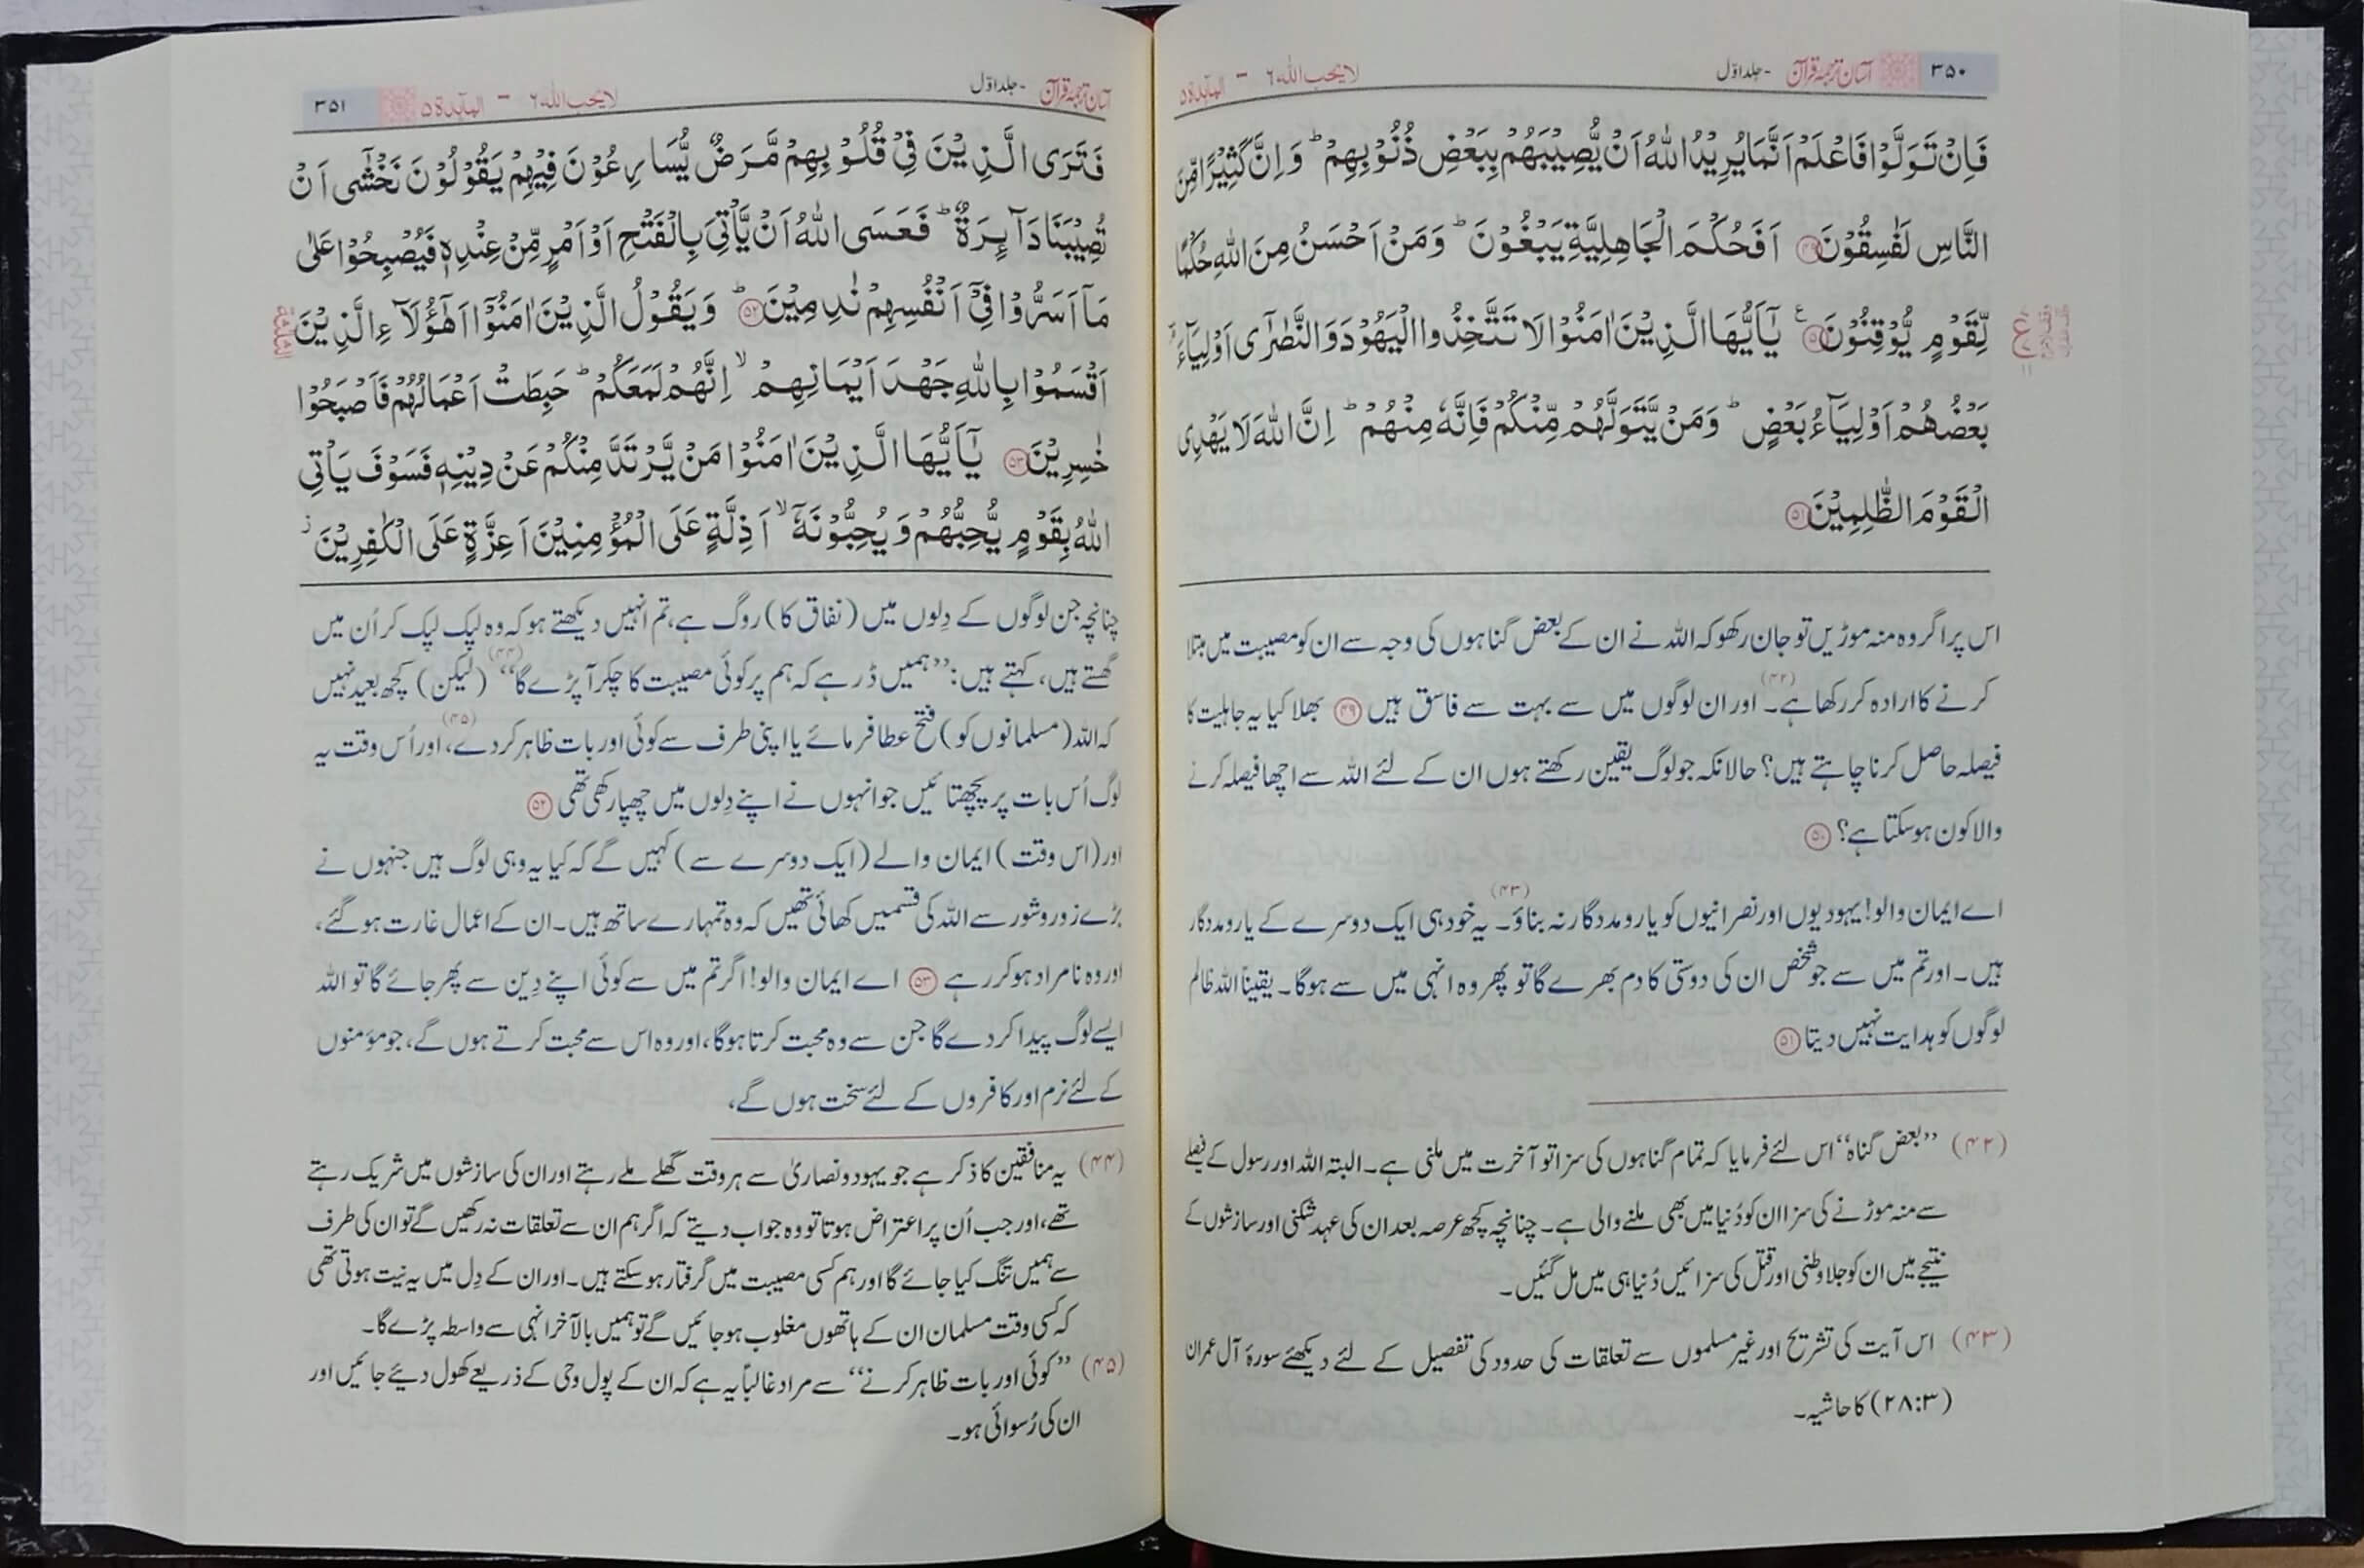 ۳۵۰ آسان ترجمۂ قرآن - جلد اوّل لا یحب اللہ ۶ - المآىٕدة ۵
فَاِنْ تَوَلَّوْا فَاعْلَمْ اَنَّمَا یُرِیْدُ اللّٰهُ اَنْ یُّصِیْبَهُمْ بِبَعْضِ ذُنُوْبِهِمْ ؕ وَ اِنَّ كَثِیْرًا مِّنَ
النَّاسِ لَفٰسِقُوْنَ ۴۹ اَفَحُكْمَ الْجَاهِلِیَّةِ یَبْغُوْنَ ؕ وَ مَنْ اَحْسَنُ مِنَ اللّٰهِ حُكْمًا
لِّقَوْمٍ یُّوْقِنُوْنَ ۵۰ ع یٰۤاَیُّهَا الَّذِیْنَ اٰمَنُوْا لَا تَتَّخِذُوا الْیَهُوْدَ وَ النَّصٰرٰۤى اَوْلِیَآءَ ؔۘ
ع
۱۱
بَعْضُهُمْ اَوْلِیَآءُ بَعْضٍ ؕ وَ مَنْ یَّتَوَلَّهُمْ مِّنْكُمْ فَاِنَّهٗ مِنْهُمْ ؕ اِنَّ اللّٰهَ لَا یَهْدِی
الْقَوْمَ الظّٰلِمِیْنَ ۵۱
اس پر اگر وہ منہ موڑیں تو جان رکھو کہ اللہ نے ان کے بعض گناہوں کی وجہ سے ان کو مصیبت میں مبتلا
کرنے کا ارادہ کر رکھا ہے۔(۴۲) اور ان لوگوں میں سے بہت سے فاسق ہیں ۴۹ بھلا کیا یہ جاہلیت کا
فیصلہ حاصل کرنا چاہتے ہیں؟ حالانکہ جو لوگ یقین رکھتے ہوں ان کے لئے اللہ سے اچھا فیصلہ کرنے
والا کون ہو سکتا ہے؟ ۵۰
اے ایمان والو! یہودیوں اور نصرانیوں کو یار و مددگار نہ بناؤ۔(۴۳) یہ خود ہی ایک دوسرے کے یار و مددگار
ہیں۔ اور تم میں سے جو شخص ان کی دوستی کا دم بھرے گا تو پھر وہ انہی میں سے ہوگا۔ یقیناً اللہ ظالم
لوگوں کو ہدایت نہیں دیتا ۵۱
(۴۲) ”بعض گناہ“ اس لئے فرمایا کہ تمام گناہوں کی سزا تو آخرت میں ملنی ہے۔ البتہ اللہ اور رسول کے فیصلے
سے منہ موڑنے کی سزا ان کو دُنیا میں بھی ملنے والی ہے۔ چنانچہ کچھ عرصہ بعد ان کی عہد شکنی اور سازشوں کے
نتیجے میں ان کو جلا وطنی اور قتل کی سزائیں دُنیا ہی میں مل گئیں۔
(۴۳) اس آیت کی تشریح اور غیر مسلموں سے تعلقات کی حدود کی تفصیل کے لئے دیکھئے سورۂ آل عمران
(۲۸:۳) کا حاشیہ۔
آسان ترجمۂ قرآن - جلد اوّل لا یحب اللہ ۶ - المآىٕدة ۵ ۳۵۱
فَتَرَى الَّذِیْنَ فِیْ قُلُوْبِهِمْ مَّرَضٌ یُّسَارِعُوْنَ فِیْهِمْ یَقُوْلُوْنَ نَخْشٰۤى اَنْ
تُصِیْبَنَا دَآىِٕرَةٌ ؕ فَعَسَى اللّٰهُ اَنْ یَّاْتِیَ بِالْفَتْحِ اَوْ اَمْرٍ مِّنْ عِنْدِهٖ فَیُصْبِحُوْا عَلٰى
مَاۤ اَسَرُّوْا فِیْۤ اَنْفُسِهِمْ نٰدِمِیْنَ ؕ ۵۲ وَ یَقُوْلُ الَّذِیْنَ اٰمَنُوْۤا اَهٰۤؤُلَآءِ الَّذِیْنَ
الثلٰثة
اَقْسَمُوْا بِاللّٰهِ جَهْدَ اَیْمَانِهِمْ ۙ اِنَّهُمْ لَمَعَكُمْ ؕ حَبِطَتْ اَعْمَالُهُمْ فَاَصْبَحُوْا
خٰسِرِیْنَ ۵۳ یٰۤاَیُّهَا الَّذِیْنَ اٰمَنُوْا مَنْ یَّرْتَدَّ مِنْكُمْ عَنْ دِیْنِهٖ فَسَوْفَ یَاْتِی
اللّٰهُ بِقَوْمٍ یُّحِبُّهُمْ وَ یُحِبُّوْنَهٗۤ ۙ اَذِلَّةٍ عَلَى الْمُؤْمِنِیْنَ اَعِزَّةٍ عَلَى الْكٰفِرِیْنَ ؗ
چنانچہ جن لوگوں کے دِلوں میں (نفاق کا) روگ ہے، تم انہیں دیکھتے ہو کہ وہ لپک لپک کر اُن میں
گھستے ہیں، کہتے ہیں: ”ہمیں ڈر ہے کہ ہم پر کوئی مصیبت کا چکر آ پڑے گا“(۴۴) (لیکن) کچھ بعید نہیں
کہ اللہ (مسلمانوں کو) فتح عطا فرمائے یا اپنی طرف سے کوئی اور بات ظاہر کردے،(۴۵) اور اُس وقت یہ
لوگ اُس بات پر پچھتائیں جو انہوں نے اپنے دِلوں میں چھپا رکھی تھی ۵۲
اور (اس وقت) ایمان والے (ایک دوسرے سے) کہیں گے کہ کیا یہ وہی لوگ ہیں جنہوں نے
بڑے زور و شور سے اللہ کی قسمیں کھائی تھیں کہ وہ تمہارے ساتھ ہیں۔ ان کے اعمال غارت ہوگئے،
اور وہ نامراد ہو کر رہے ۵۳ اے ایمان والو! اگر تم میں سے کوئی اپنے دِین سے پھر جائے گا تو اللہ
ایسے لوگ پیدا کردے گا جن سے وہ محبت کرتا ہوگا، اور وہ اس سے محبت کرتے ہوں گے، جو مؤمنوں
کے لئے نرم اور کافروں کے لئے سخت ہوں گے،
(۴۴) یہ منافقین کا ذکر ہے جو یہود و نصاریٰ سے ہر وقت گھلے ملے رہتے اور ان کی سازشوں میں شریک رہتے
تھے، اور جب اُن پر اعتراض ہوتا تو وہ جواب دیتے کہ اگر ہم ان سے تعلقات نہ رکھیں گے تو ان کی طرف
سے ہمیں تنگ کیا جائے گا اور ہم کسی مصیبت میں گرفتار ہو سکتے ہیں۔ اور ان کے دِل میں یہ نیت ہوتی تھی
کہ کسی وقت مسلمان ان کے ہاتھوں مغلوب ہوجائیں گے تو ہمیں بالآخر انہی سے واسطہ پڑے گا۔
(۴۵) ”کوئی اور بات ظاہر کرنے“ سے مراد غالباً یہ ہے کہ ان کے پول وحی کے ذریعے کھول دیئے جائیں اور
ان کی رُسوائی ہو۔